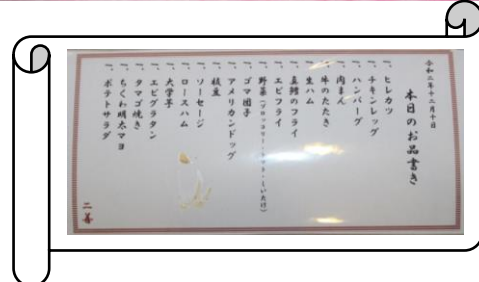 令和二年十二月十日
本日のお品書き
一、ヒレカツ
一、チキンレッグ
一、ハンバーグ
一、肉まん
一、牛のたたき
一、生ハム
一、真鱈のフライ
一、エビフライ
一、野菜(ブロッコリー・トマト・しいたけ)
一、ゴマ団子
一、アメリカンドッグ
一、枝豆
一、ソーセージ
一、ロースハム
一、大学芋
一、エビグラタン
一、タマゴ焼き
一、ちくわ明太マヨ
一、ポテトサラダ
二善